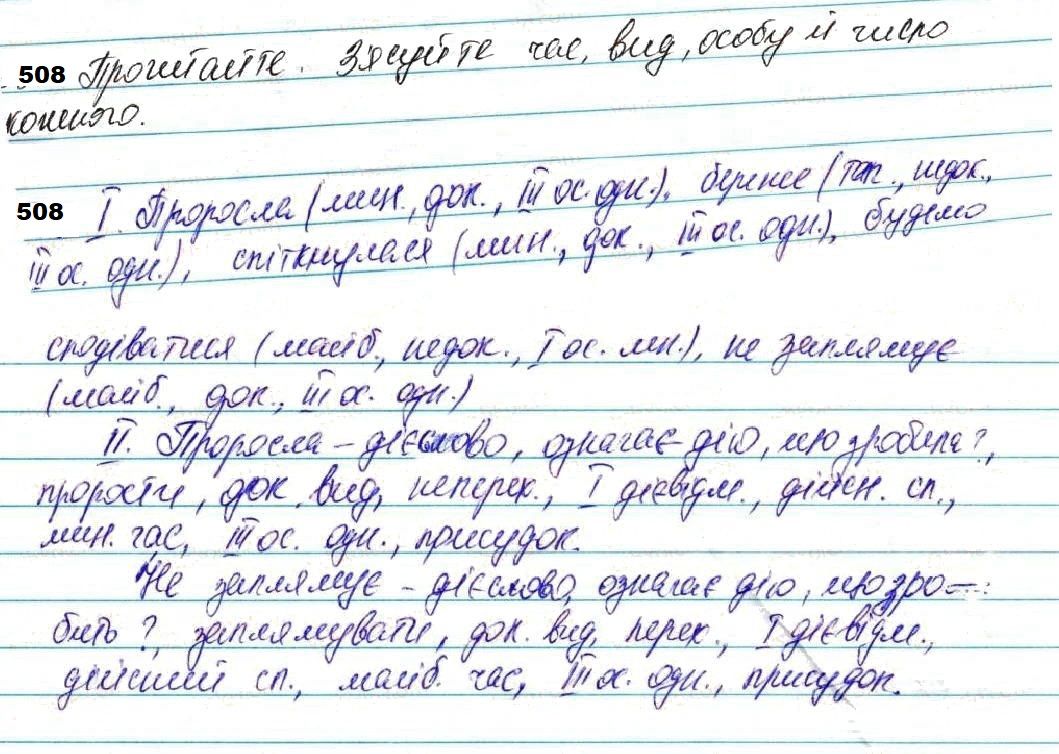 508 Прочитайте. З'ясуйте час, вид, особу й число
кожного.
508 I. Проросла (мин., док., III ос. одн.), береже (теп., недок.,
III ос. одн.), спіткнулася (мин., док., III ос. одн.), будемо
сподіватися (майб., недок., I ос. мн.), не заплямує
(майб., док., III ос. одн.)
II. Проросла – дієслово, означає дію, що зробила?,
прорости, док. вид, неперех., I дієвідм., дійсн. сп.,
мин. час, III ос. одн., присудок.
Не заплямує – дієслово, означає дію, що зро-
бить?, заплямувати, док. вид, перех., I дієвідм.,
дійсний сп., майб. час, III ос. одн., присудок.